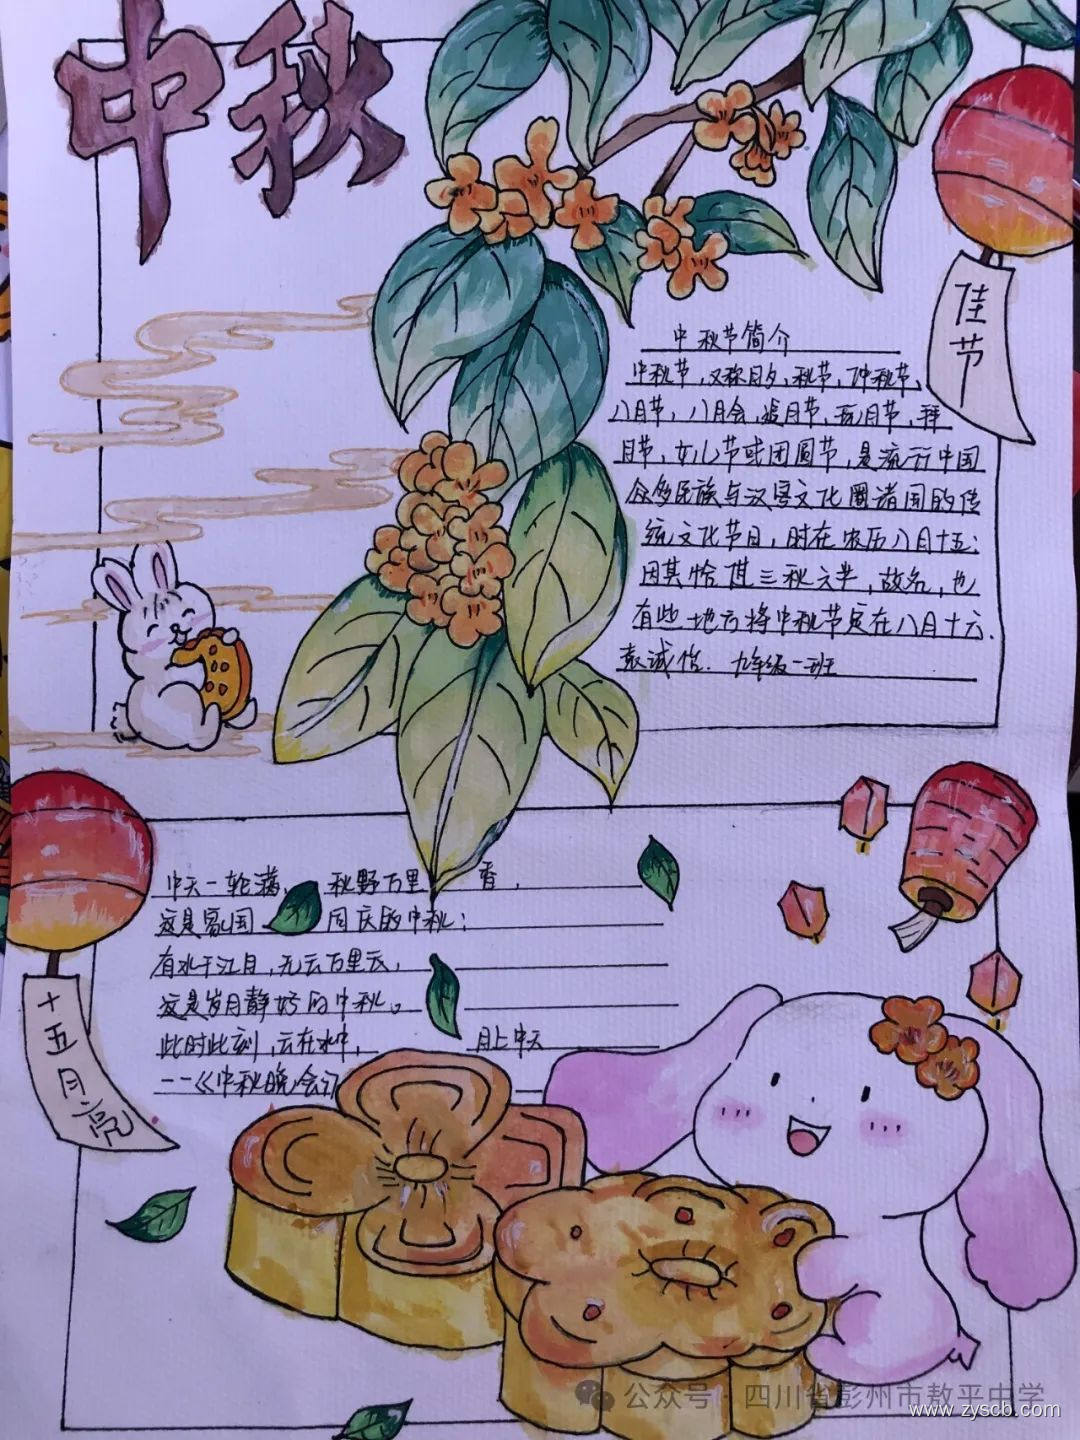 中秋
佳节
中秋节简介
中秋节，又称月夕，秋节，仲秋节，
八月节，八月会，追月节，玩月节，拜
月节，女儿节或团圆节，是流行中国
众多民族与汉字文化圈诸国的传
统文化节日，时在农历八月十五；
因其恰值三秋之半，故名，也
有些地方将中秋节定在八月十六.
诚怡. 九年级一班
十五月亮
中天一轮满，秋野万里香，
这是家国同庆的中秋；
有水千江月，无云万里天，
这是岁月静好的中秋。
此时此刻，云在水中，月上中天
——《中秋晚会》
公众号·四川省彭州市敖平中学
www.zyscb.com